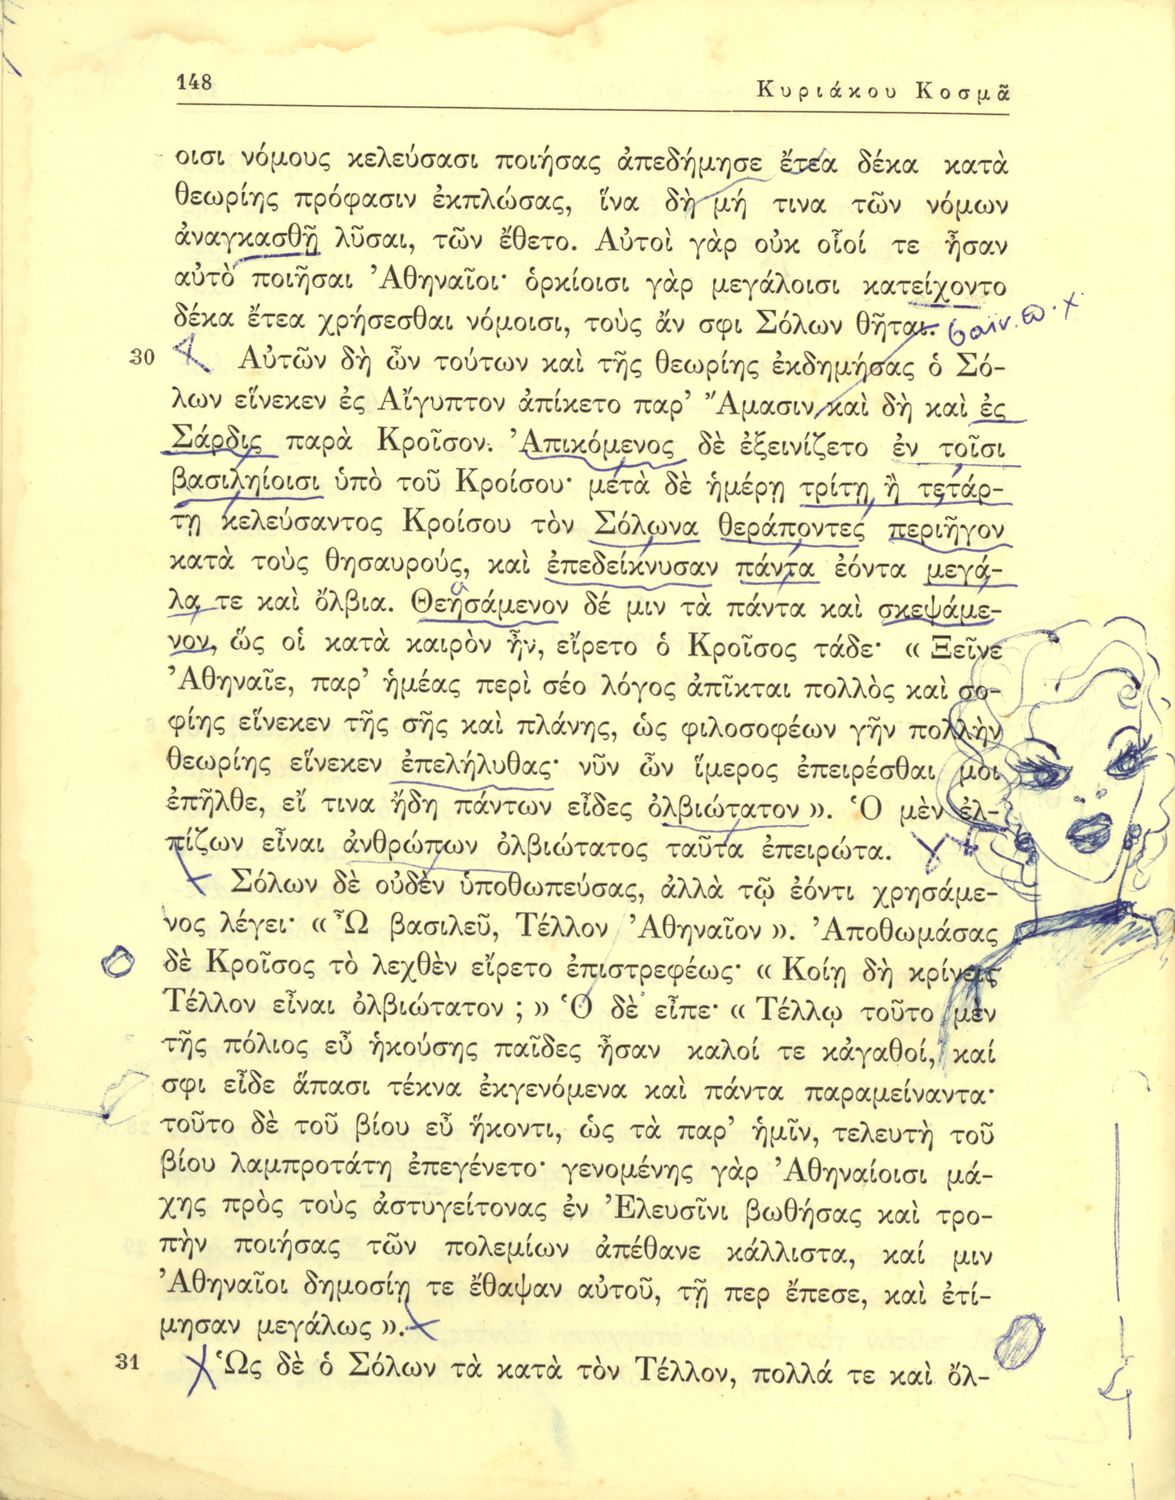 148
Κυριάκου Κοσμᾶ
οισι νόμους κελεύσασι ποιήσας ἀπεδήμησε ἔτεα δέκα κατὰ
θεωρίης πρόφασιν ἐκπλώσας, ἵνα δὴ μή τινα τῶν νόμων
ἀναγκασθῇ λῦσαι, τῶν ἔθετο. Αὐτοὶ γὰρ οὐκ οἷοί τε ἦσαν
αὐτὸ ποιῆσαι Ἀθηναῖοι· ὁρκίοισι γὰρ μεγάλοισι κατείχοντο
δέκα ἔτεα χρήσεσθαι νόμοισι, τοὺς ἄν σφι Σόλων θῆται.
30 Αὐτῶν δὴ ὦν τούτων καὶ τῆς θεωρίης ἐκδημήσας ὁ Σό-
λων εἵνεκεν ἐς Αἴγυπτον ἀπίκετο παρ’ Ἄμασιν καὶ δὴ καὶ ἐς
Σάρδις παρὰ Κροῖσον. Ἀπικόμενος δὲ ἐξεινίζετο ἐν τοῖσι
βασιληίοισι ὑπὸ τοῦ Κροίσου· μετὰ δὲ ἡμέρῃ τρίτῃ ἢ τετάρ-
τῃ κελεύσαντος Κροίσου τὸν Σόλωνα θεράποντες περιῆγον
κατὰ τοὺς θησαυρούς, καὶ ἐπεδείκνυσαν πάντα ἐόντα μεγά-
λα τε καὶ ὄλβια. Θεησάμενον δέ μιν τὰ πάντα καὶ σκεψάμε-
νον, ὥς οἱ κατὰ καιρὸν ἦν, εἴρετο ὁ Κροῖσος τάδε· « Ξεῖνε
Ἀθηναῖε, παρ’ ἡμέας περὶ σέο λόγος ἀπῖκται πολλὸς καὶ σο-
φίης εἵνεκεν τῆς σῆς καὶ πλάνης, ὡς φιλοσοφέων γῆν πολλὴν
θεωρίης εἵνεκεν ἐπελήλυθας· νῦν ὦν ἵμερος ἐπειρέσθαι μοι
ἐπῆλθε, εἴ τινα ἤδη πάντων εἶδες ὀλβιώτατον ». Ὁ μὲν ἐλ-
πίζων εἶναι ἀνθρώπων ὀλβιώτατος ταῦτα ἐπειρώτα.
Σόλων δὲ οὐδὲν ὑποθωπεύσας, ἀλλὰ τῷ ἐόντι χρησάμε-
νος λέγει· « Ὦ βασιλεῦ, Τέλλον Ἀθηναῖον ». Ἀποθωμάσας
δὲ Κροῖσος τὸ λεχθὲν εἴρετο ἐπιστρεφέως· « Κοίῃ δὴ κρίνεις
Τέλλον εἶναι ὀλβιώτατον ; » Ὁ δὲ εἶπε· « Τέλλῳ τοῦτο μὲν
τῆς πόλιος εὖ ἡκούσης παῖδες ἦσαν καλοί τε κἀγαθοί, καί
σφι εἶδε ἅπασι τέκνα ἐκγενόμενα καὶ πάντα παραμείναντα·
τοῦτο δὲ τοῦ βίου εὖ ἥκοντι, ὡς τὰ παρ’ ἡμῖν, τελευτὴ τοῦ
βίου λαμπροτάτη ἐπεγένετο· γενομένης γὰρ Ἀθηναίοισι μά-
χης πρὸς τοὺς ἀστυγείτονας ἐν Ἐλευσῖνι βωθήσας καὶ τρο-
πὴν ποιήσας τῶν πολεμίων ἀπέθανε κάλλιστα, καί μιν
Ἀθηναῖοι δημοσίῃ τε ἔθαψαν αὐτοῦ, τῇ περ ἔπεσε, καὶ ἐτί-
μησαν μεγάλως ».
31 Ὡς δὲ ὁ Σόλων τὰ κατὰ τὸν Τέλλον, πολλά τε καὶ ὄλ-